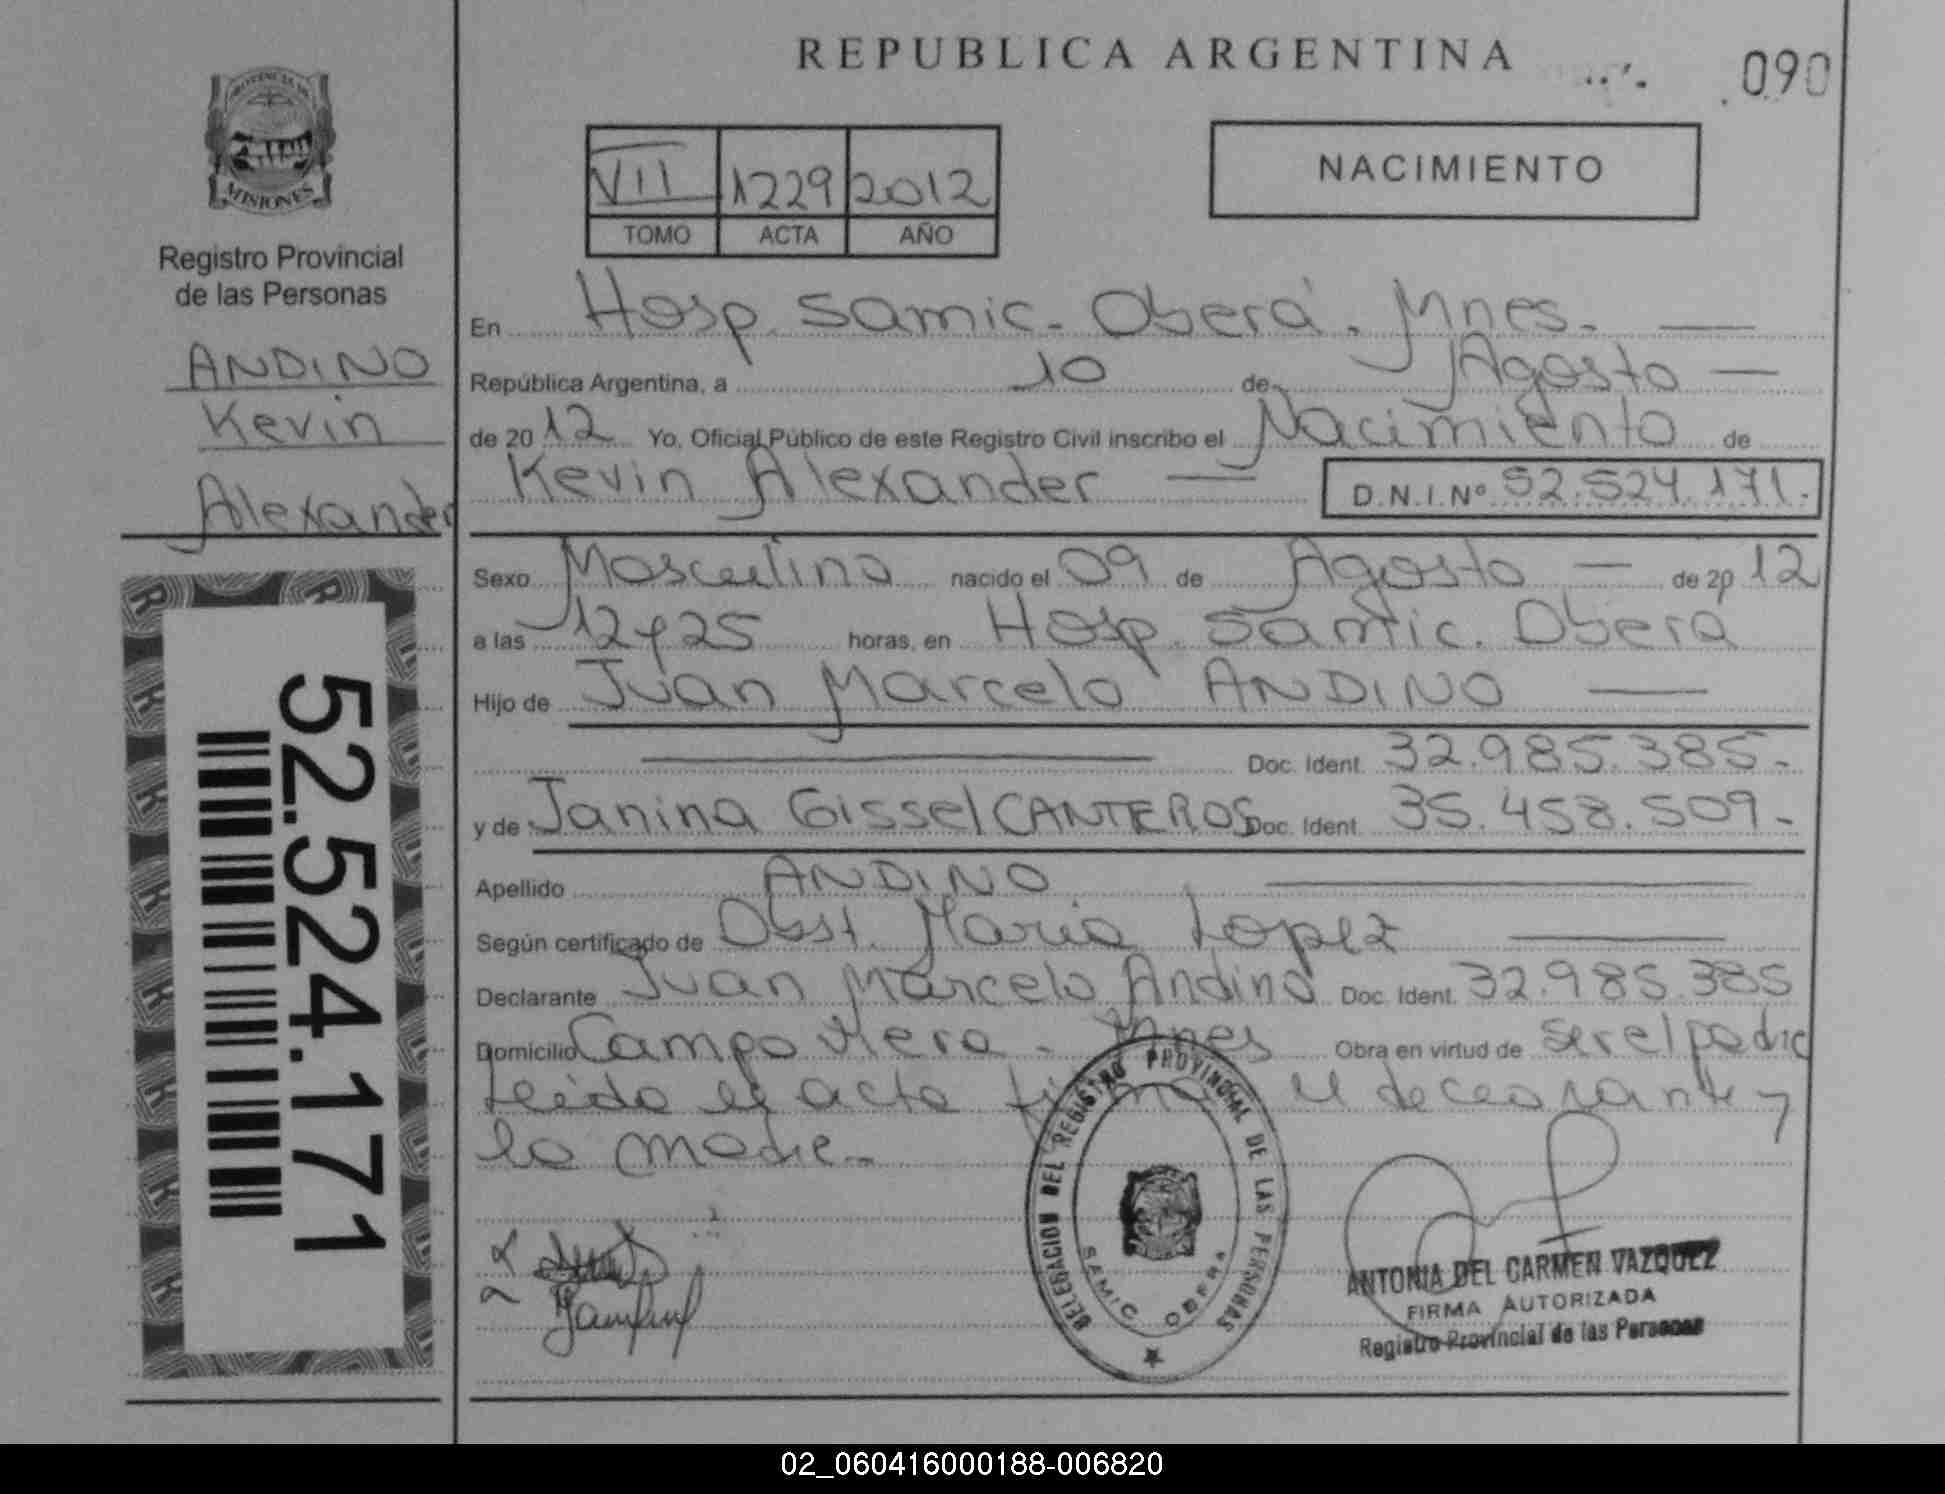 REPUBLICA ARGENTINA
090
PROVINCIA DE
MISIONES
Registro Provincial
de las Personas
ANDINO
Kevin
Alexander
52.524.171
VII 1229 2012
TOMO ACTA AÑO
NACIMIENTO
En Hosp. Samic. Oberá. Mnes.
República Argentina, a 10 de Agosto
de 2012 Yo, Oficial Público de este Registro Civil inscribo el Nacimiento de
Kevin Alexander D.N.I.Nº 52.524.171.
Sexo Masculino nacido el 09 de Agosto de 2012
a las 12 y 25 horas, en Hosp. Samic. Oberá
Hijo de Juan Marcelo ANDINO
Doc. Ident. 32.985.385.
y de Janina Gissel CANTEROS Doc. Ident. 35.458.509.
Apellido ANDINO
Según certificado de Obst. Maria Lopez
Declarante Juan Marcelo Andino Doc. Ident. 32.985.385
Domicilio Campo Viera. Mnes Obra en virtud de ser el padre
Leida el acta firma el declarante y
la madre.
DELEGACION DEL REGISTRO PROVINCIAL DE LAS PERSONAS
SAMIC OBERA
ANTONIA DEL CARMEN VAZQUEZ
FIRMA AUTORIZADA
Registro Provincial de las Personas
02_060416000188-006820